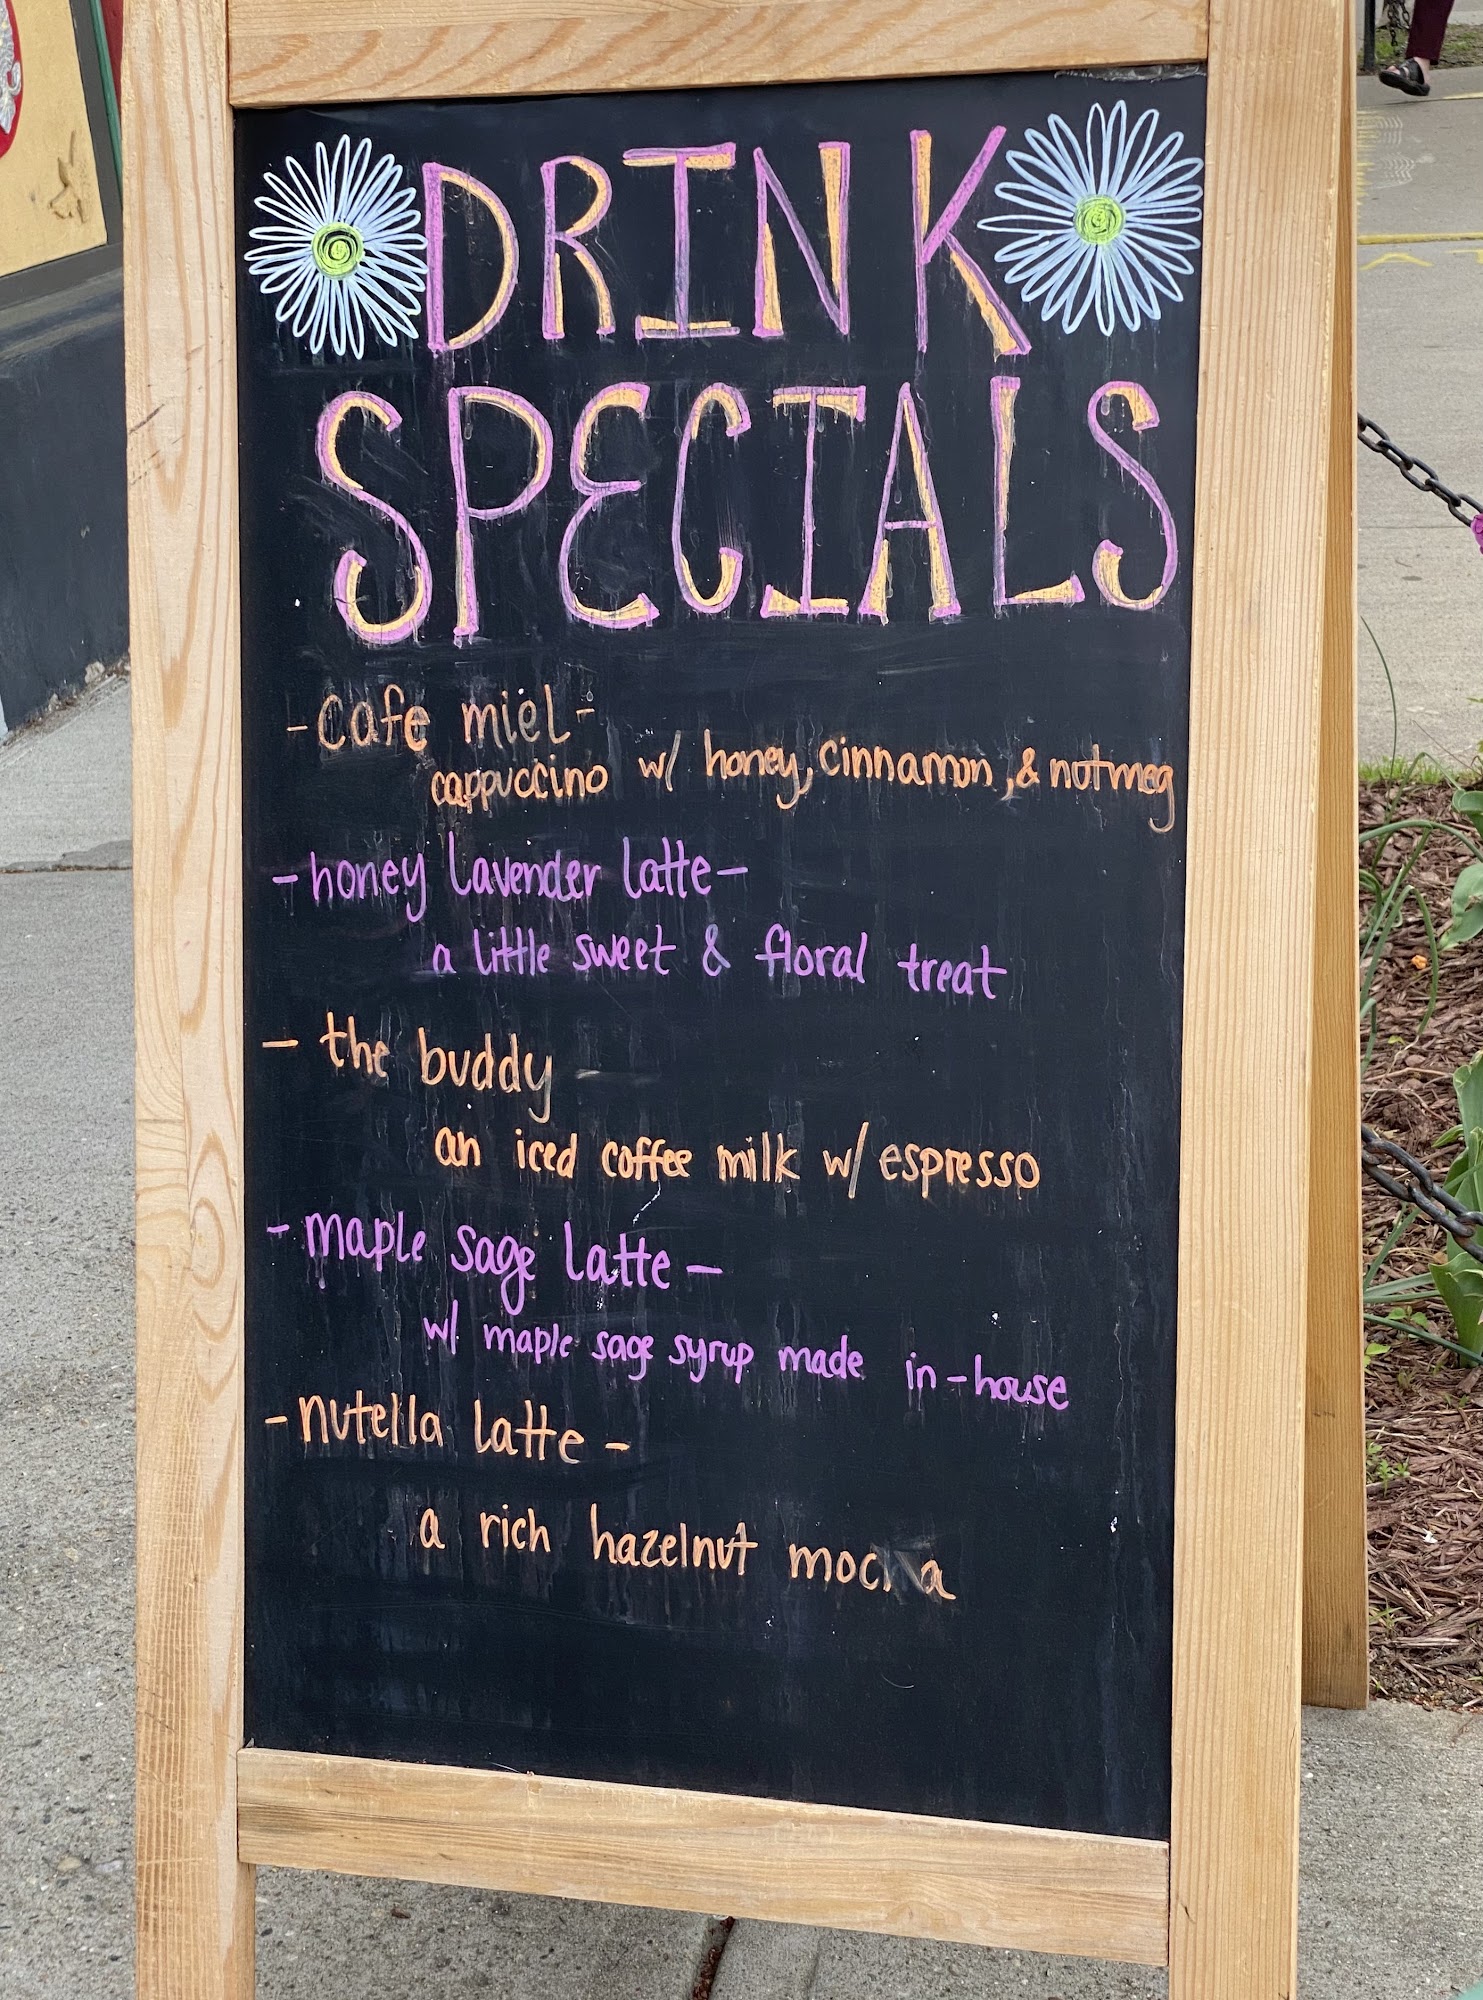 DRINK
SPECIALS
- cafe miel -
cappuccino w/ honey, cinnamon, & nutmeg
- honey lavender latte -
a little sweet & floral treat
- the buddy -
an iced coffee milk w/ espresso
- maple sage latte -
w/ maple sage syrup made in-house
- nutella latte -
a rich hazelnut mocha